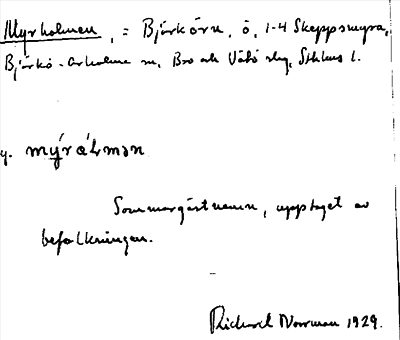 Myrholmen, = Björkörn, ö, 1-4 Skeppsmyra,
Björkö-Arholma sn, Bro och Vätö slg, Sthlms l.
y. mýrɑ̀lmən
Sommargästnamn, upptaget av
befolkningen.
Richard Norrman 1929.